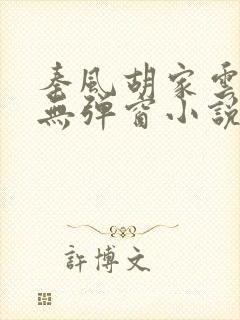 秦風胡家雲
無彈窗小說
許博文